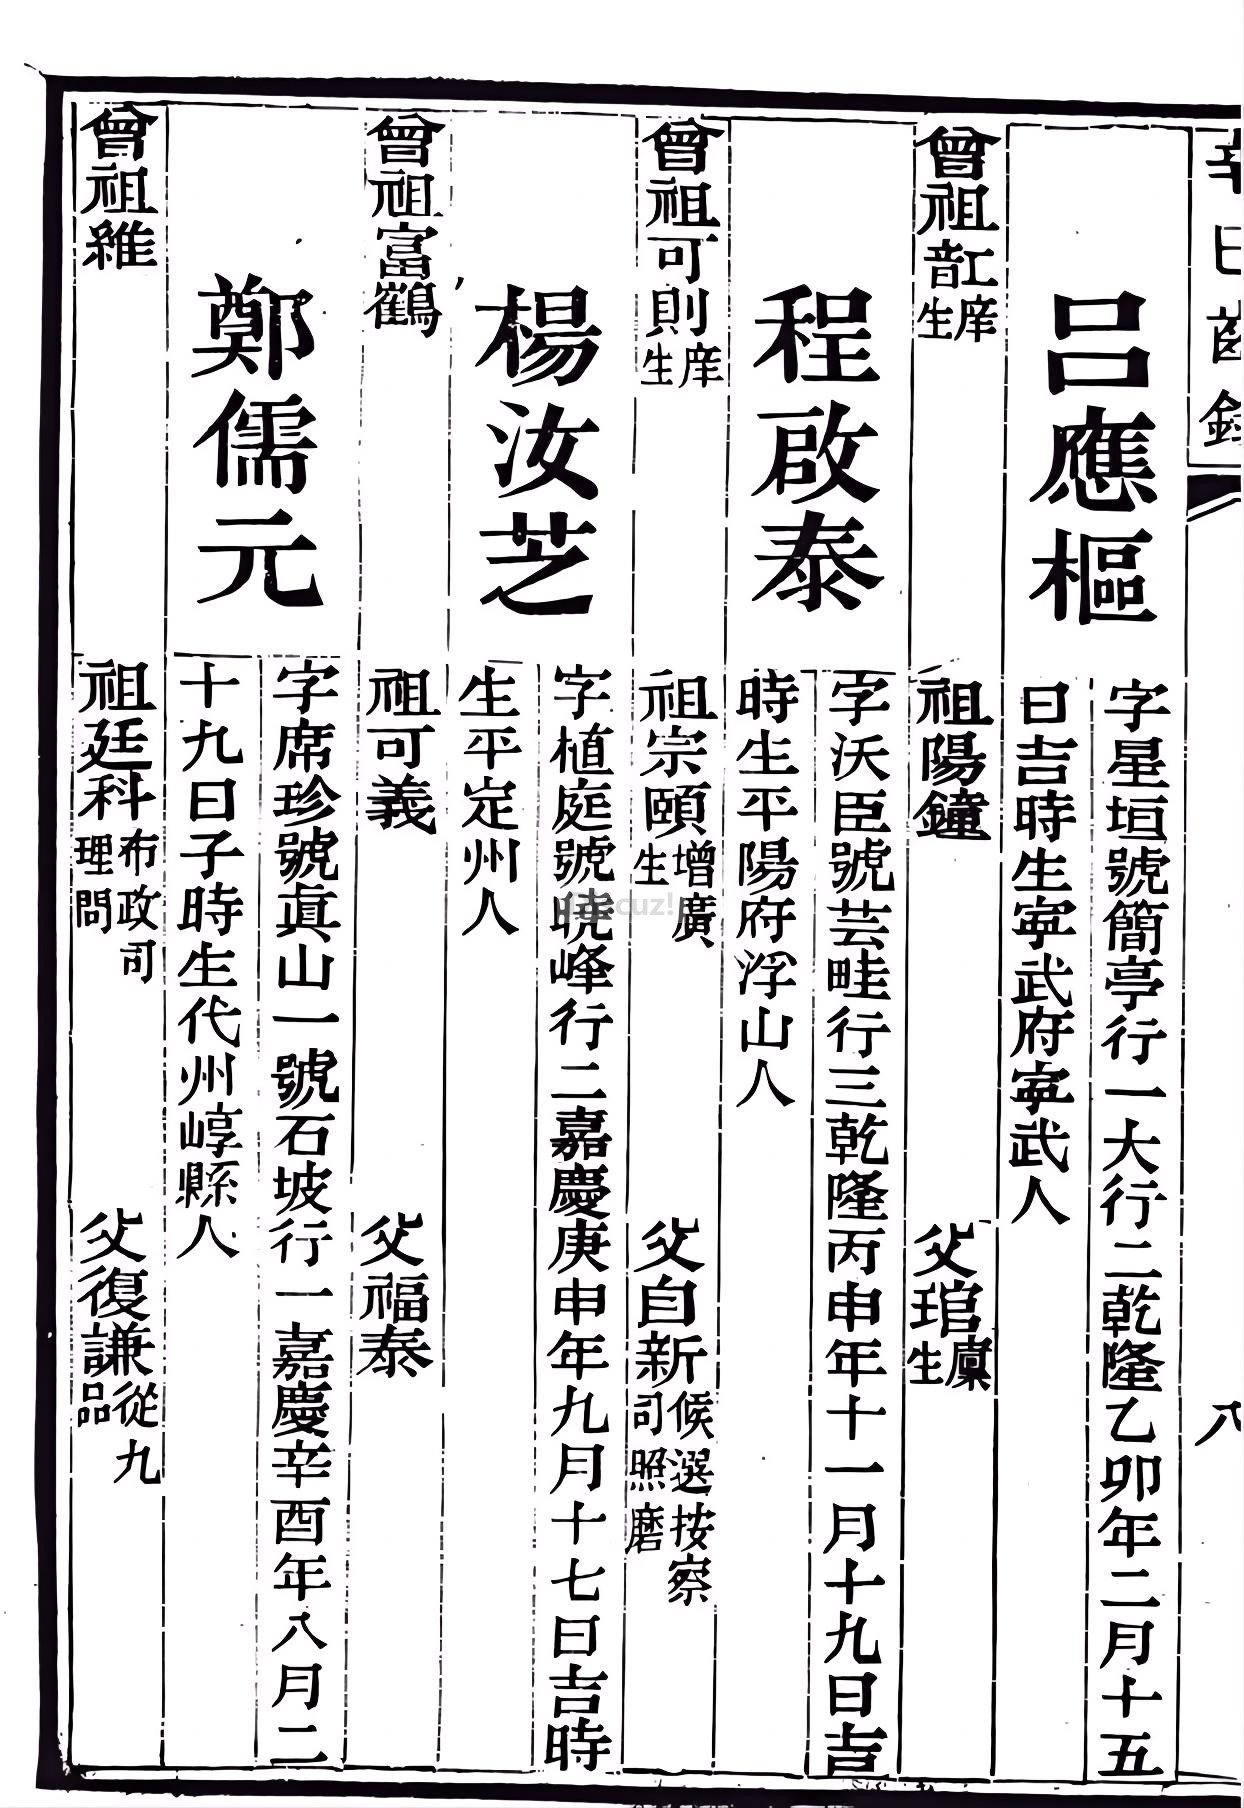 辛巳齒錄 八
呂應樞
字星垣號簡亭行一大行二乾隆乙卯年二月十五
日吉時生寧武府寧武人
曾祖庠生 祖陽鐘 父琯廩生
程啟泰
字沃臣號芸畦行三乾隆丙申年十一月十九日吉
時生平陽府浮山人
曾祖可則庠生 祖宗頤增廣生 父自新候選按察司照磨
楊汝芝
字植庭號曉峰行二嘉慶庚申年九月十七日吉時
生平定州人
曾祖富鶴 祖可義 父福泰
鄭儒元
字席珍號眞山一號石坡行一嘉慶辛酉年八月二
十九日子時生代州崞縣人
曾祖維 祖廷科布政司理問 父復謙從九品